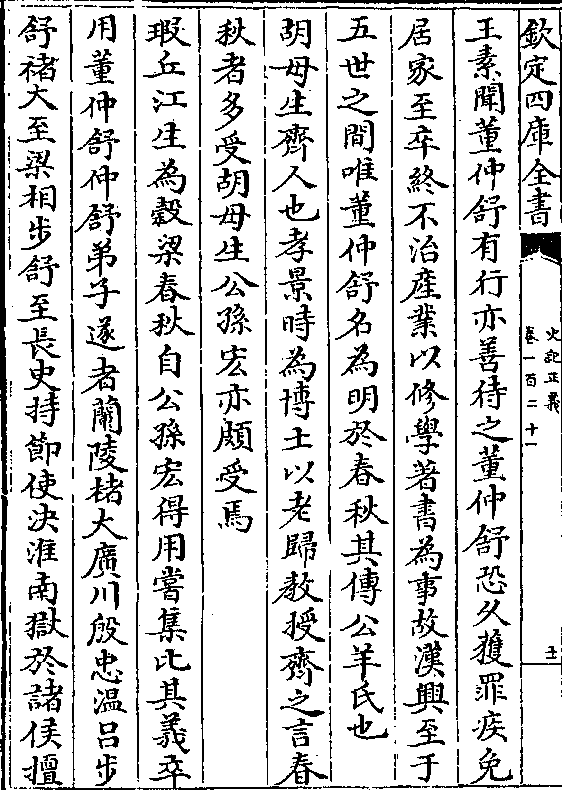 欽定四庫全書
史記正義
卷一百二十一
王素聞董仲舒有行亦善待之董仲舒恐久獲罪疾免
居家至卒終不治産業以修學著書為事故漢興至于
五世之間唯董仲舒名為明於春秋其傳公羊氏也
胡母生齊人也孝景時為博士以老歸教授齊之言春
秋者多受胡母生公孫宏亦頗受焉
瑕丘江生為穀梁春秋自公孫宏得用嘗集比其義卒
用董仲舒仲舒弟子遂者蘭陵禇大廣川殷忠温吕步
舒禇大至梁相步舒至長史持節使決淮南獄於諸侯擅